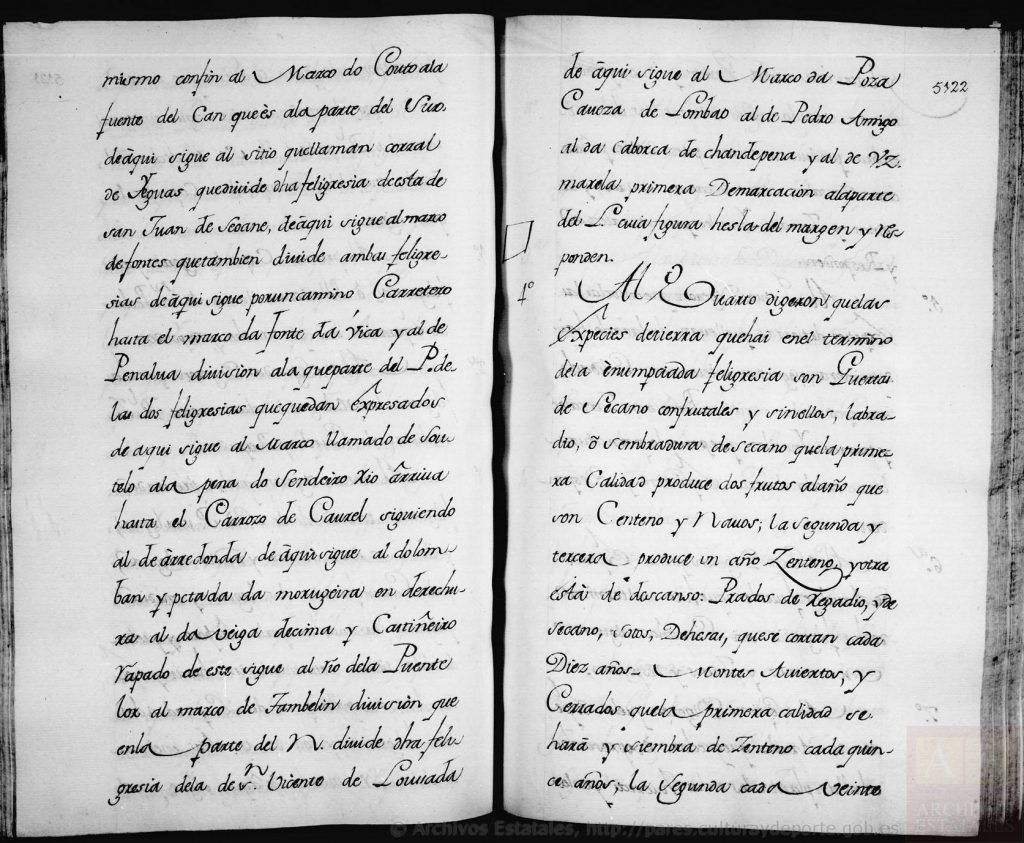 mismo confin al Marco do Couto ala
fuente del Can que ès ala parte del Sur.
deàqui sigue al sitio quellaman corral
de Yeguas quedivide dha feligresia deesta de
san Juan de Seoane, deàqui sigue al marco
de fontes quetambien divide ambas feligre-
sias deàqui sigue poruncamino Carretero
hasta el marco da fonte da Vica y al de
Penalua división ala queparte del P. de-
las dos feligresias quequedan êxpresados
de aqui sigue al Marco llamado de Sou-
telo ala pena do Sendeiro Rio ârriua
hasta el Carrozo de Caurel siguiendo
al de àrredonda de àqui sigue al dolom-
ban y petada da morugeira en derechu-
ra al da Veiga decima y Castiñeiro
rapado de este sigue al río dela Puente
lor al marco de Fambelin división que
enla parte del N. divide dha feli-
gresia dela de Sn. Vicente de Lousada
de âqui sigue al Marco da Poza
Caveza de Lombao al de Pedro Amigo
al da Caborca de chandepena y al de Vz.
marela primera Demarcación alaparte
del L. cuia figura hesla del margen y Res-
ponden.
5122
4º
Al Quarto digeron, quelas
êxpecies detierra quehai enel termino
dela ènumpciada feligresia son Guertas
de Secano confrutales y sinellos, labra-
dio, ô sembradura de secano quela prime-
ra Calidad produce dos frutos alaño que
son Centeno y Navos; la segunda y
tercera produce un año Zenteno, yotro
està de descanso: Prados de Regadio, y de
secano, sotos, Dehesas, quese cortan cada
Diez años_ Montes Aviertos, y
Cerrados quela primera calidad se
harà y siembra de Zenteno cada quin-
ce años; la segunda cada veinte
© Archivos Estatales, http://pares.culturaydeporte.gob.es